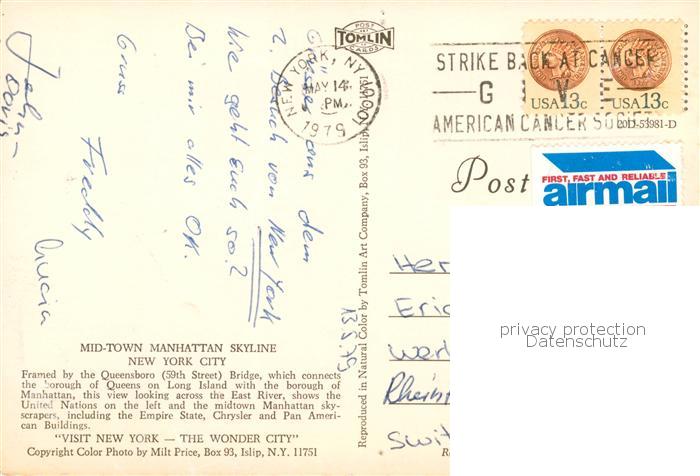 POST
TOMLIN
CARDS
NEW YORK, NY
MAY 14
PM
1979
STRIKE BACK AT CANCER
G V E
AMERICAN CANCER SOCIETY
USA 13c
USA 13c
20D-53981-D
Post
FIRST, FAST AND RELIABLE
airmail
Grüsse aus dem
2. Besuch von New York
Wie geht Euch so?
Bei mir alles OK.
Gruss
Freddy
13.5.79
Her
Eric
Werk
Rheins
Swit
privacy protection
Datenschutz
Reproduced in Natural Color by Tomlin Art Company, Box 93, Islip, N.Y. 11751
MID-TOWN MANHATTAN SKYLINE
NEW YORK CITY
Framed by the Queensboro (59th Street) Bridge, which connects
the borough of Queens on Long Island with the borough of
Manhattan, this view looking across the East River, shows the
United Nations on the left and the midtown Manhattan sky-
scrapers, including the Empire State, Chrysler and Pan Ameri-
can Buildings.
"VISIT NEW YORK — THE WONDER CITY"
Copyright Color Photo by Milt Price, Box 93, Islip, N.Y. 11751